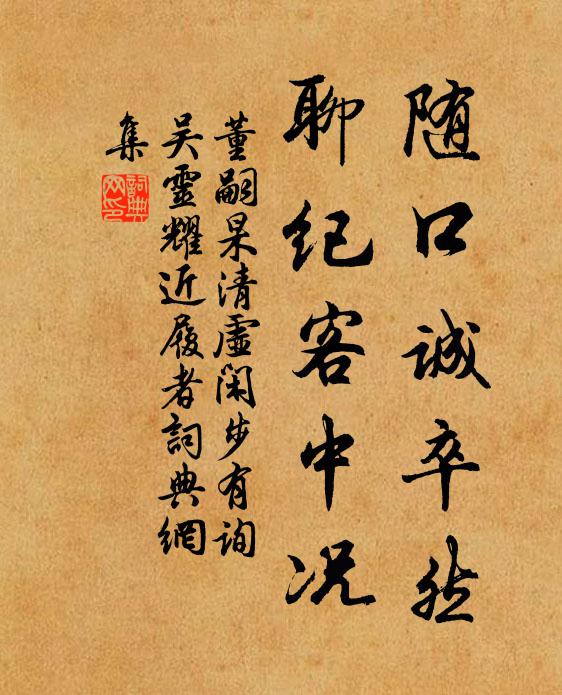 随口诚卒然
聊纪客中况
董嗣杲清虚闲步有询
吴灵耀近履者詞典網
集
詞典网印